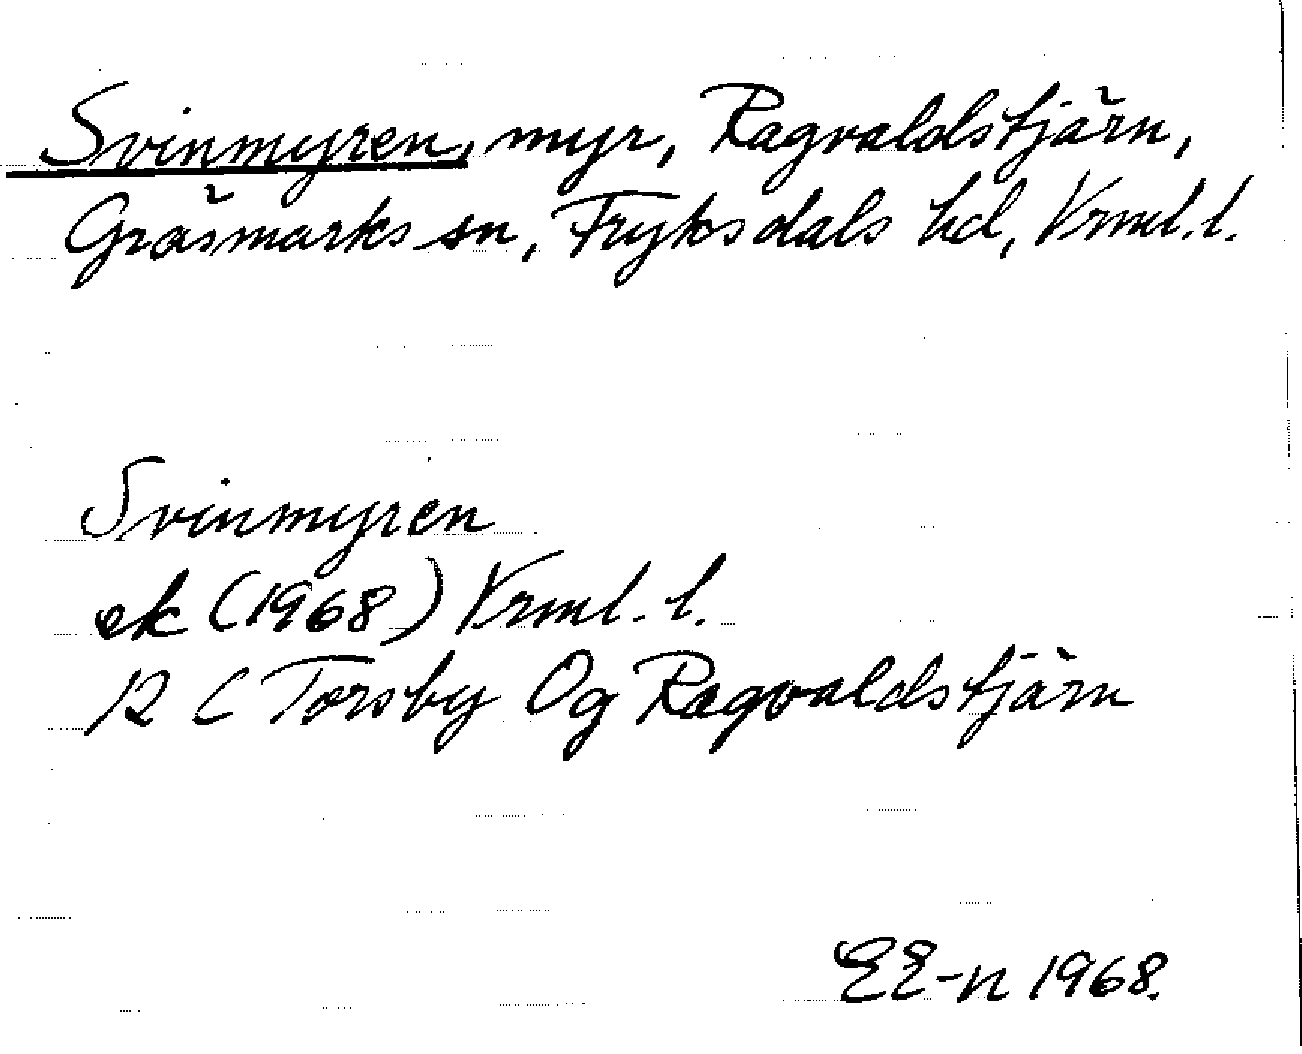 Svinmyren, myr, Ragvaldstjärn,
Gräsmarks sn, Fryksdals hd, Vrml. l.
Svinmyren
ek (1968) Vrml. l.
12 C Torsby Og Ragvaldstjärn
EE-n 1968.